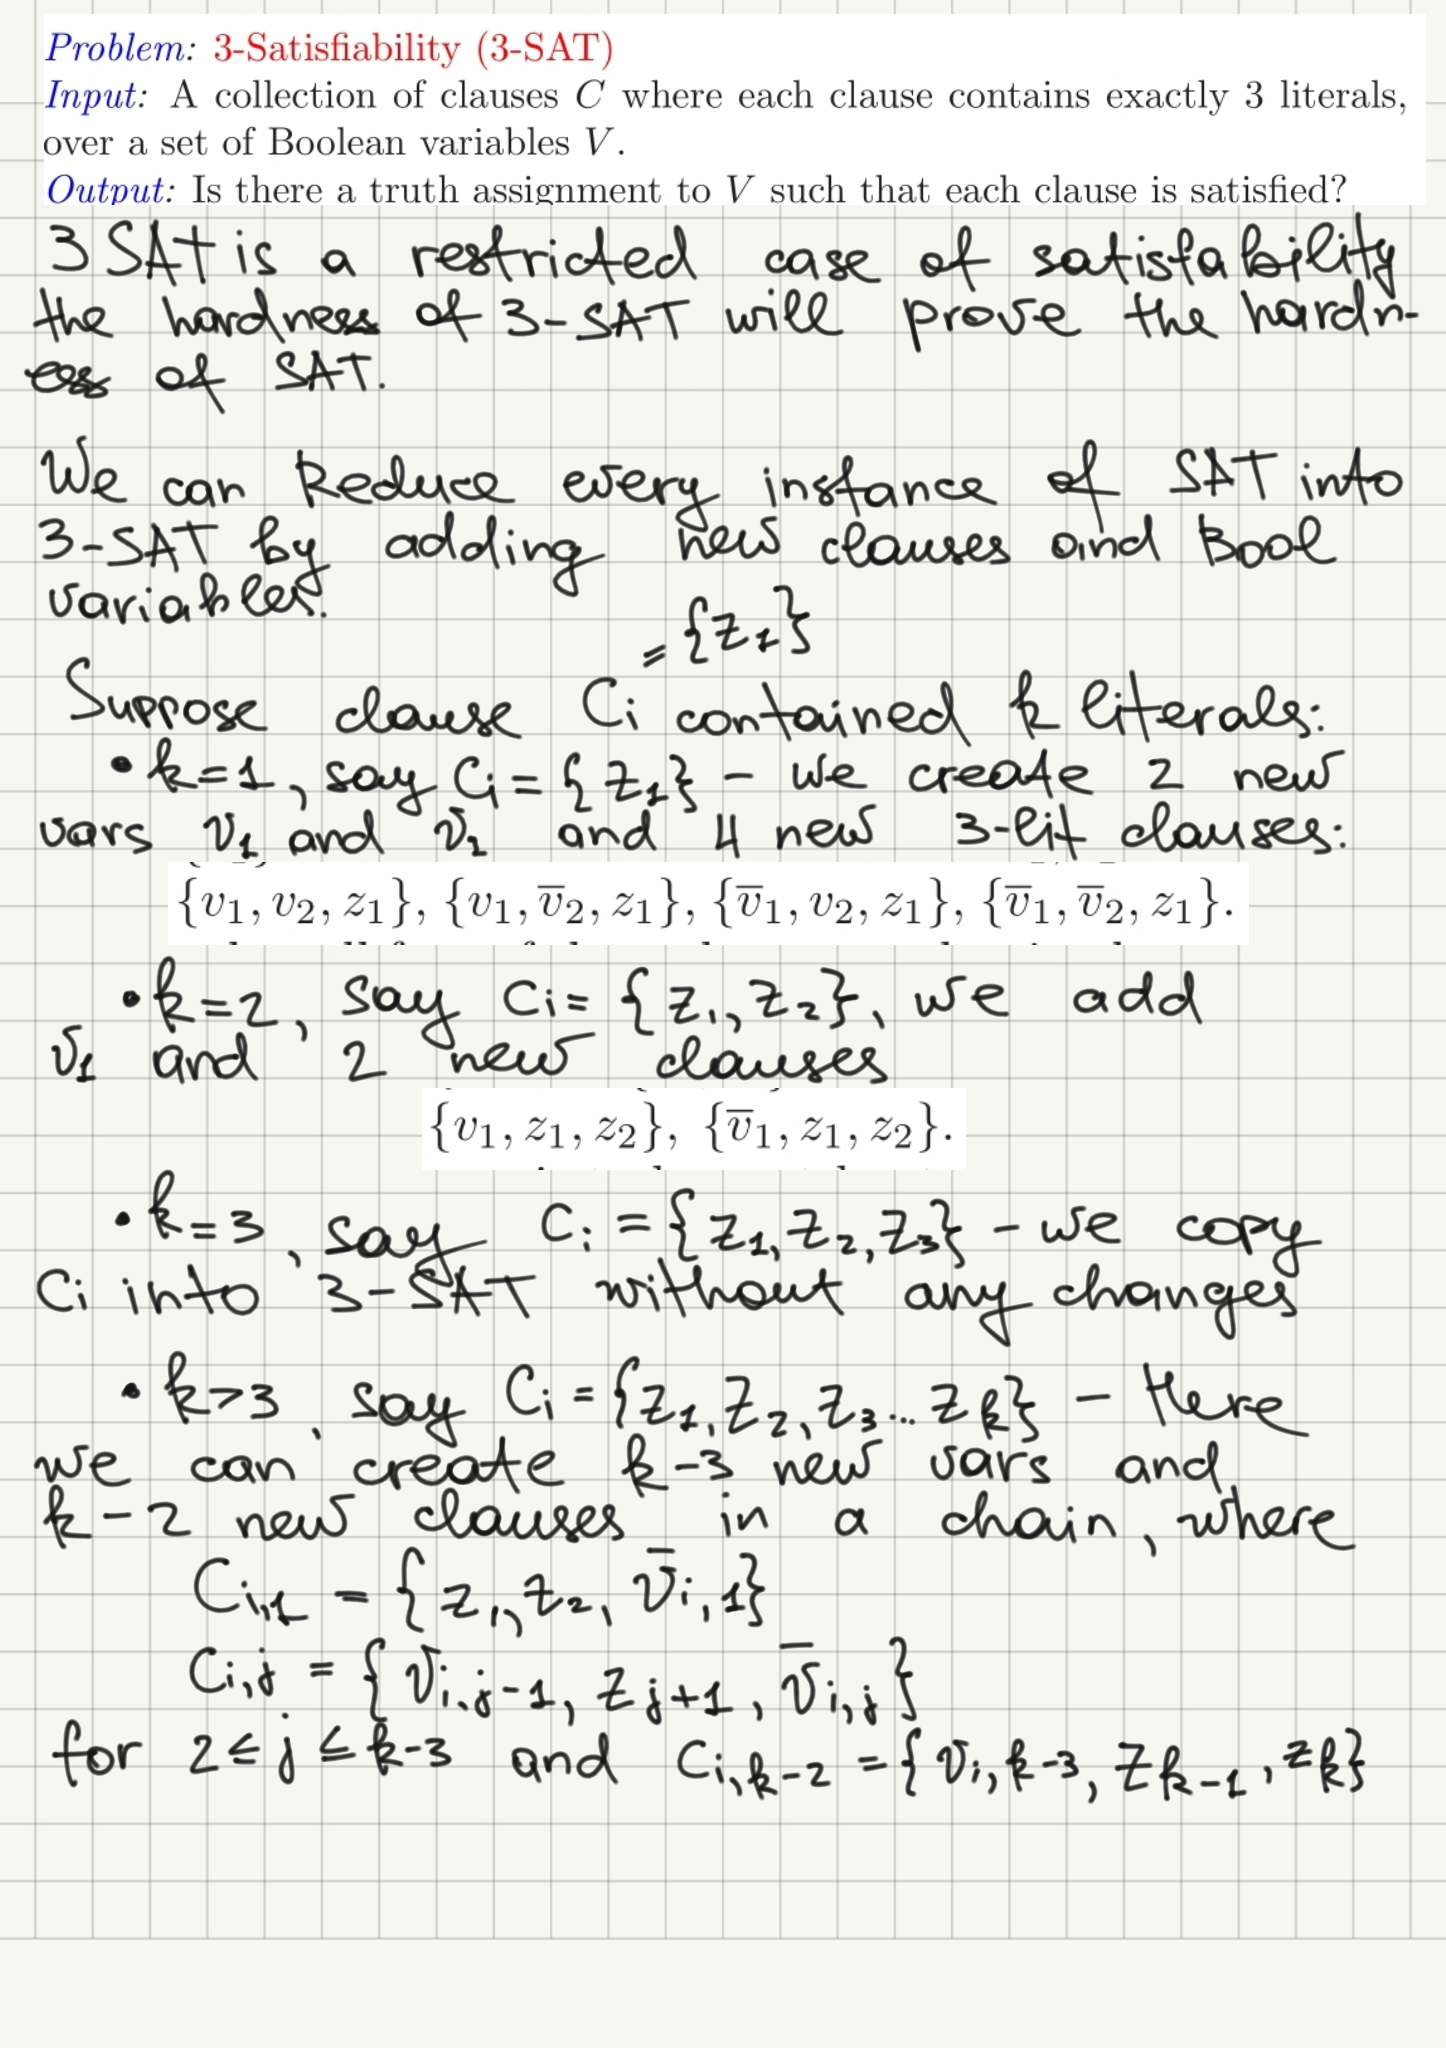 Problem: 3-Satisfiability (3-SAT)
Input: A collection of clauses C where each clause contains exactly 3 literals,
over a set of Boolean variables V.
Output: Is there a truth assignment to V such that each clause is satisfied?
3 SAT is a restricted case of satisfability
the hardness of 3-SAT will prove the hardn-
ess of SAT.
We can Reduce every instance of SAT into
3-SAT by adding new clauses and Bool
variables.
= {z₁}
Suppose clause Ci contained k literals:
• k=1, say Ci = {z₁} - we create 2 new
vars v₁ and v₂ and 4 new 3-lit clauses:
{v₁, v₂, z₁}, {v₁, v̅₂, z₁}, {v̅₁, v₂, z₁}, {v̅₁, v̅₂, z₁}.
• k=2, say Ci = {z₁, z₂}, we add
v₁ and 2 new clauses
{v₁, z₁, z₂}, {v̅₁, z₁, z₂}.
• k=3, say Ci = {z₁, z₂, z₃} - we copy
Ci into 3-SAT without any changes
• k>3, say Ci = {z₁, z₂, z₃... zk} - Here
we can create k-3 new vars and
k-2 new clauses in a chain, where
Ci,1 = {z₁, z₂, v̅i,1}
Ci,j = {vi,j-1, zj+1, v̅i,j}
for 2 ≤ j ≤ k-3 and Ci,k-2 = {vi,k-3, zk-1, zk}